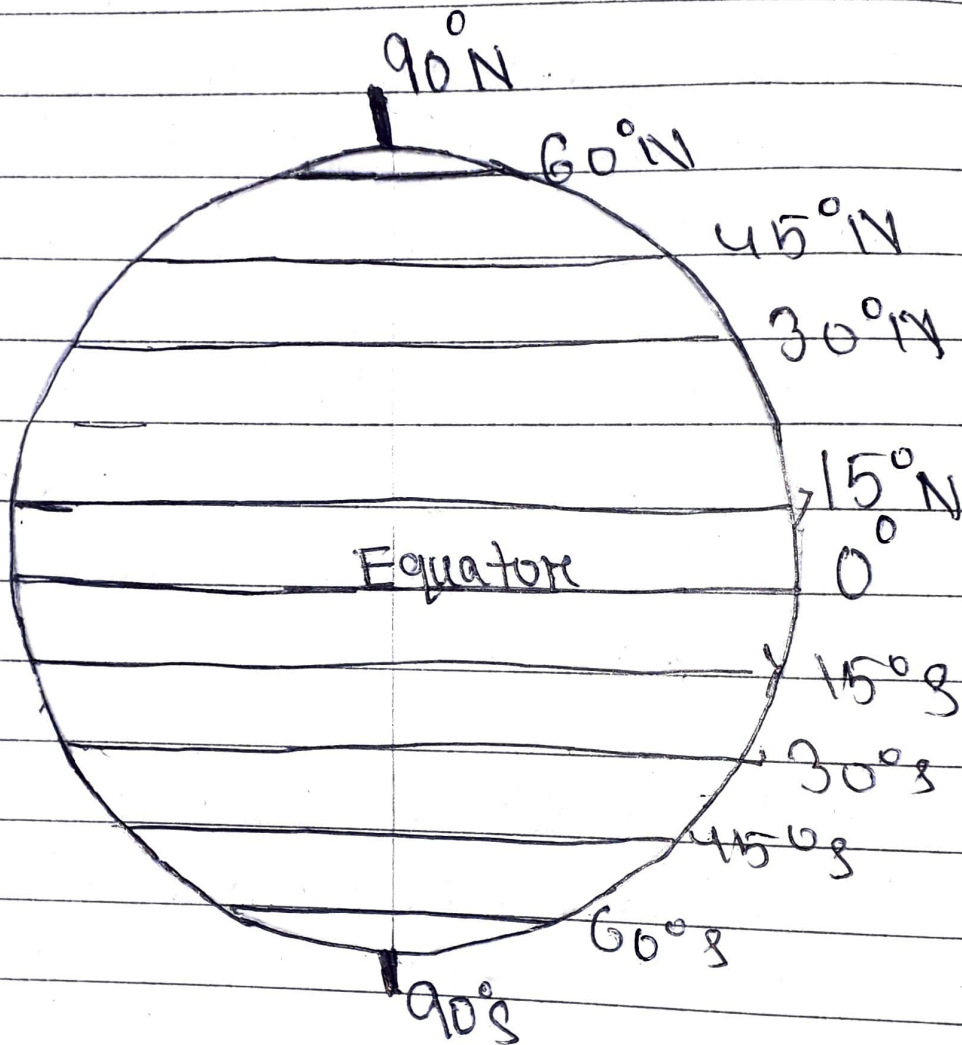 90°N
60°N
45°N
30°N
15°N
0°
Equatore
15°S
30°S
45°S
60°S
90°S